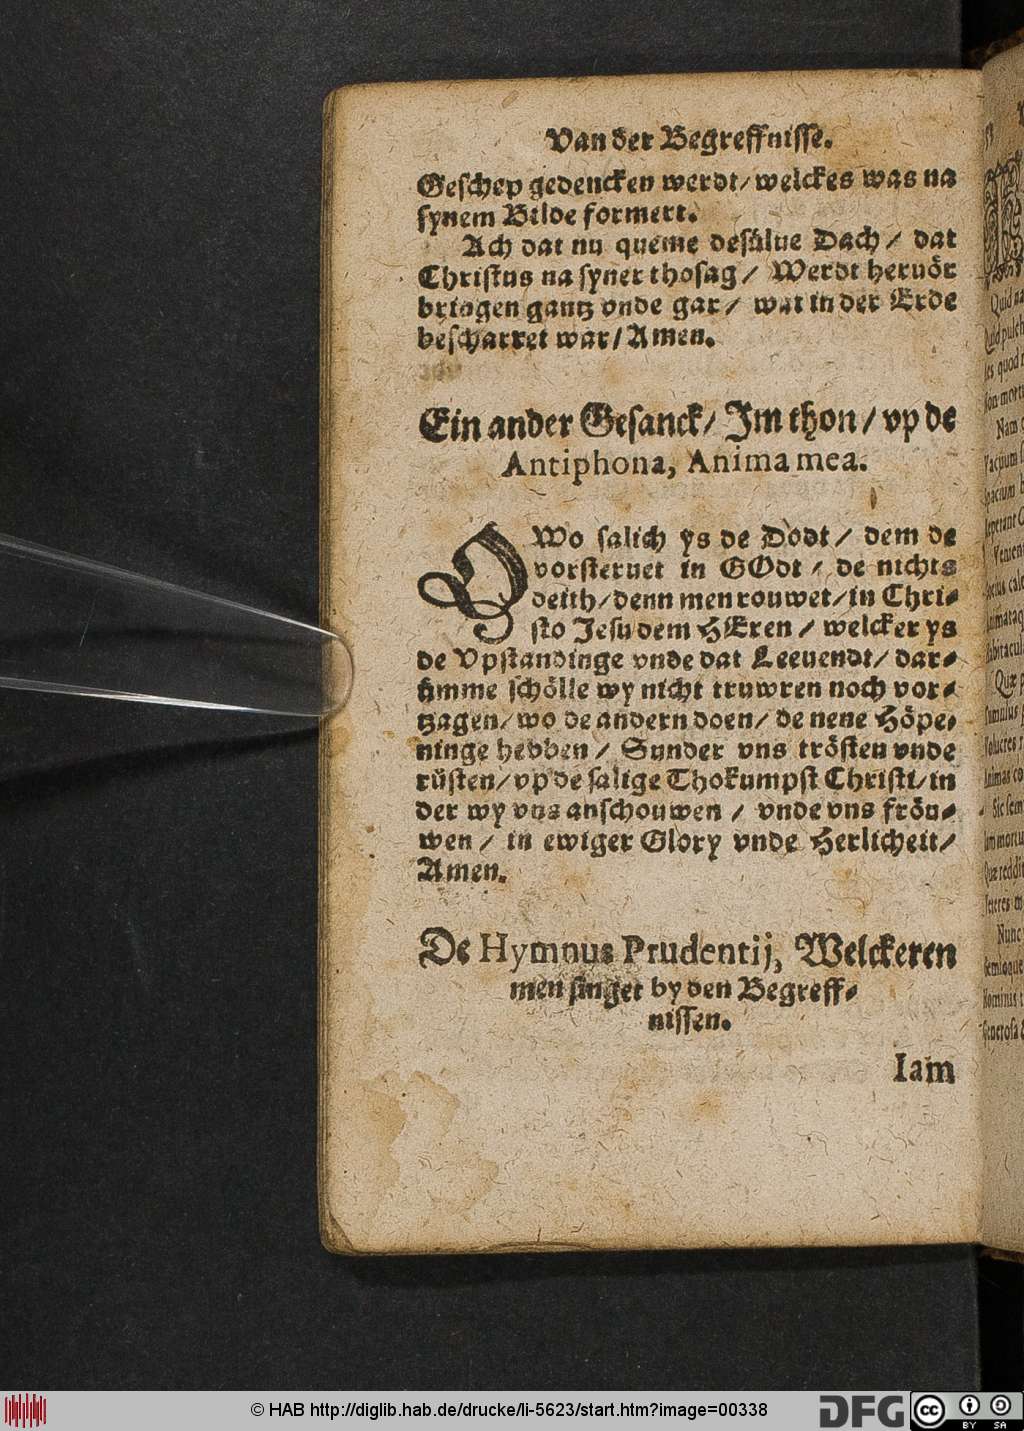 Van der Begreffnisse.
Geschep gedencken werdt/ welckes was na
synem Bilde formert.
Ach dat nu queme desülue Dach/ dat
Christus na syner thosag/ Werdt heruör
bringen gantz vnde gar/ wat in der Erde
bescharret war/ Amen.
Ein ander Gesanck/ Im thon/ vp de
Antiphona, Anima mea.
OWo salich ys de Dodt/ dem de
vorsteruet in GOdt/ de nichts
deith/ denn men rouwet/ in Chri-
sto Jesu dem HEren/ welcker ys
de Vpstandinge vnde dat Leeuendt/ dar-
ümme schölle wy nicht truwren noch vor-
tzagen/ wo de andern doen/ de nene Höpe-
ninge hebben/ Sunder vns trösten vnde
rüsten/ vp de salige Thokumpst Christi/ in
der wy vns anschouwen/ vnde vns fröu-
wen/ in ewiger Glory vnde Herlicheit/
Amen.
De Hymnus Prudentij, Welckeren
men singet by den Begreff-
nissen.
Iam
© HAB http://diglib.hab.de/drucke/li-5623/start.htm?image=00338
DFG
cc
BY SA